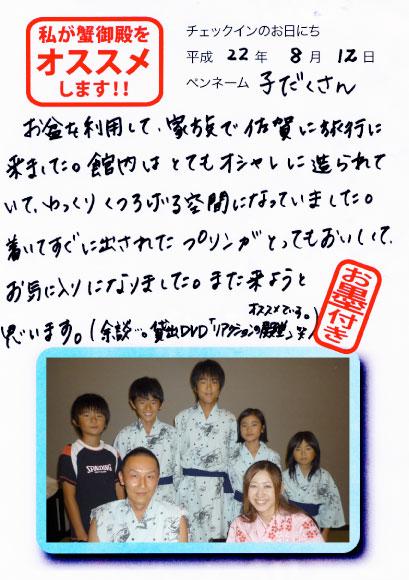 私が蟹御殿を
オススメ
します!!
チェックインのお日にち
平成 22 年 8 月 12 日
ペンネーム 子だくさん
お盆を利用して、家族で佐賀に旅行に
来ました。館内はとてもオシャレに造られて
いて、ゆっくりくつろげる空間になっていました。
着いてすぐに出されたプリンがとってもおいしくて、
お気に入りになりました。また来ようと
思います。(余談…。貸出DVD「リアクションの殿堂」オススメです。笑)
お墨付き
SPALDING